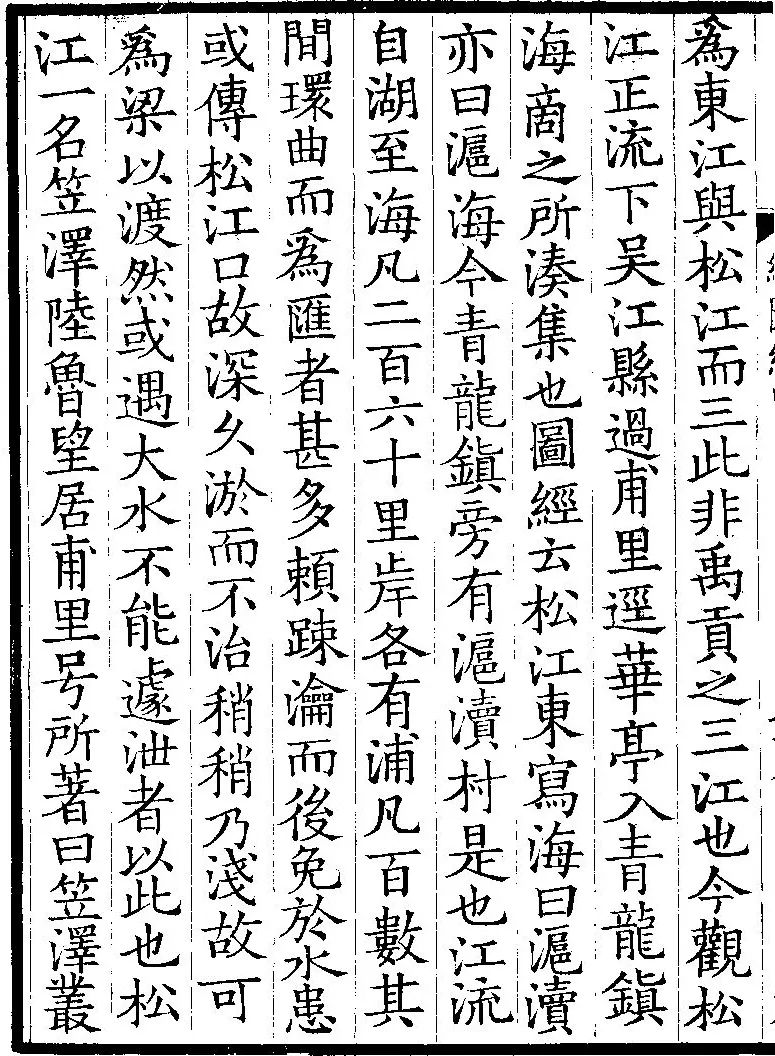 爲東江與松江而三此非禹貢之三江也今觀松
江正流下吴江縣過甫里逕華亭入青龍鎮
海商之所湊集也圖經云松江東寫海曰滬瀆
亦曰滬海今青龍鎮旁有滬瀆村是也江流
自湖至海凡二百六十里岸各有浦凡百數其
間環曲而爲匯者甚多頼踈瀹而後免於水患
或傳松江口故深久淤而不治稍稍乃淺故可
爲梁以渡然或遇大水不能遽泄者以此也松
江一名笠澤陸魯望居甫里号所著曰笠澤叢